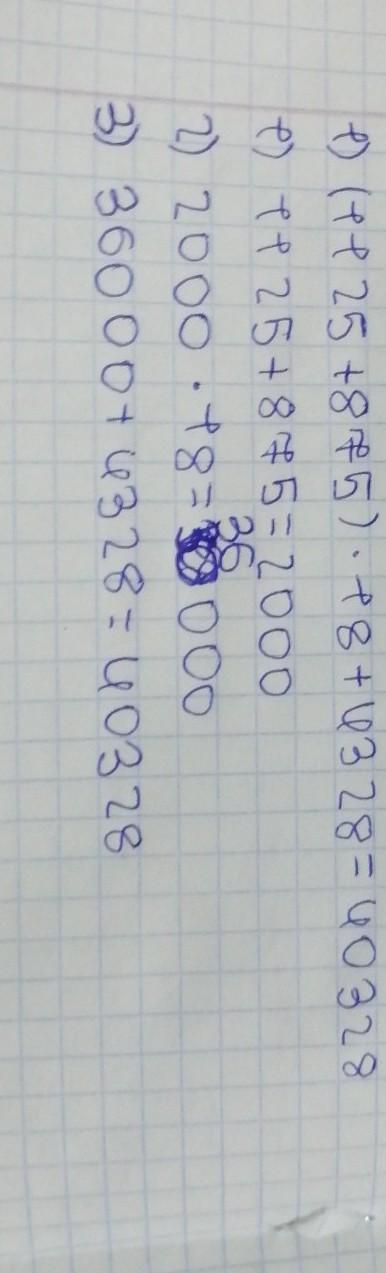 1) (1125+875)·18+4328=40328
1) 1125+875=2000
2) 2000·18=36000
3) 36000+4328=40328